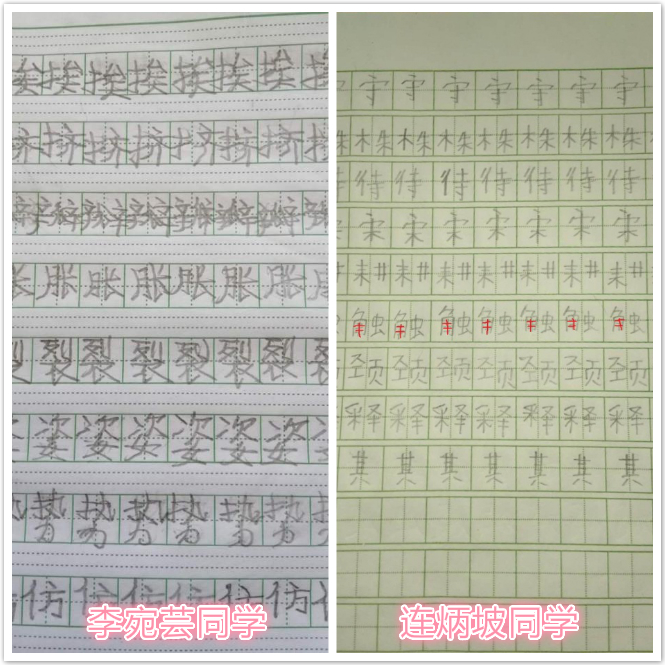 挨挨挨挨挨挨挨挨
挤挤挤挤挤挤挤挤
胀胀胀胀胀胀胀胀
裂裂裂裂裂裂裂裂
姿姿姿姿姿姿姿
势势势势势势势
仿仿仿仿仿仿仿
李宛芸同学
守守守守守守守
株株株株株株株
待待待待待待待
宋宋宋宋宋宋宋
耕耕耕耕耕耕耕
触触触触触触触
颈颈颈颈颈颈颈
释释释释释释释
其其其其其其其
连炳坡同学